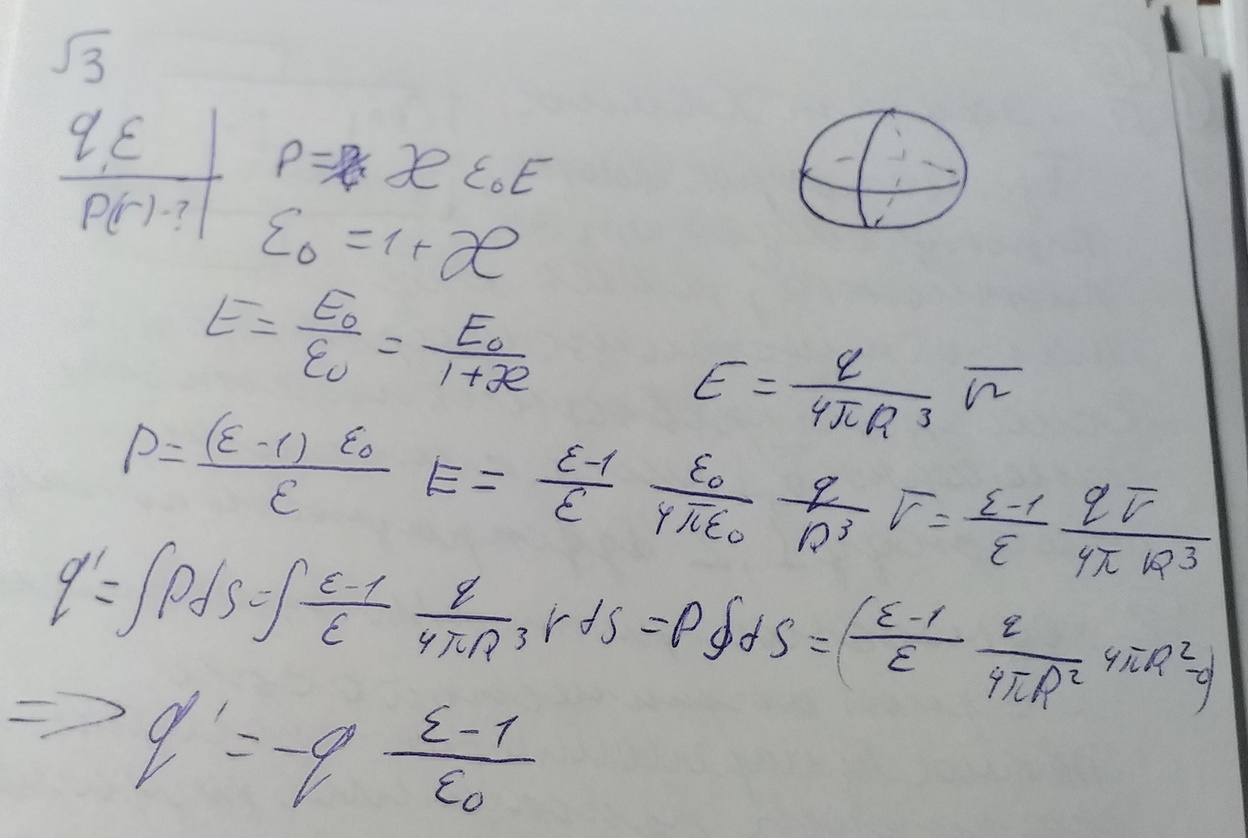 √3
q, ε
P(r)-?
P = æ ε₀E
ε₀ = 1 + æ
E = E₀/ε₀ = E₀/(1+æ)
E = q/(4πR³) r̅
P = ((ε-1) ε₀)/ε E = (ε-1)/ε ε₀/(4πε₀) q/R³ r̅ = (ε-1)/ε (q r̅)/(4π R³)
q' = ∫PdS = ∫ (ε-1)/ε q/(4πR³) r dS = P∮dS = ((ε-1)/ε q/(4πR²) 4πR²-0)
=> q' = -q (ε-1)/ε₀